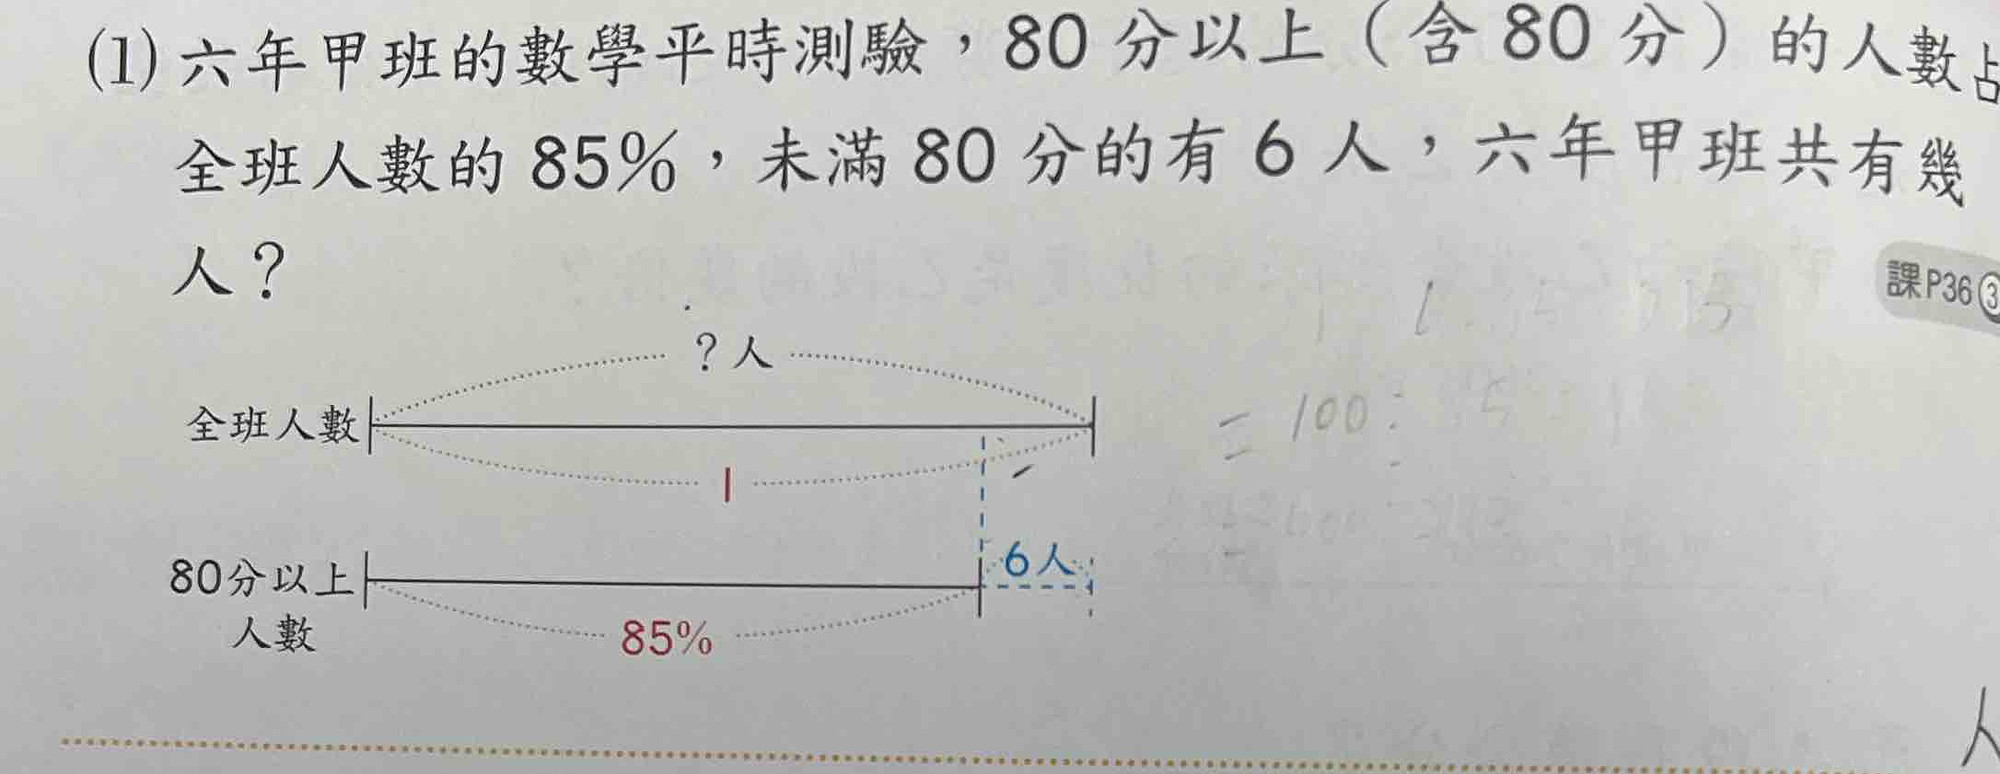 (1)六年甲班的數學平時測驗，80分以上（含80分）的人數占
全班人數的85%，未滿80分的有6人，六年甲班共有幾
人？
課P36③
?人
全班人數
1
6人
80分以上
人數
85%
= 100:
人